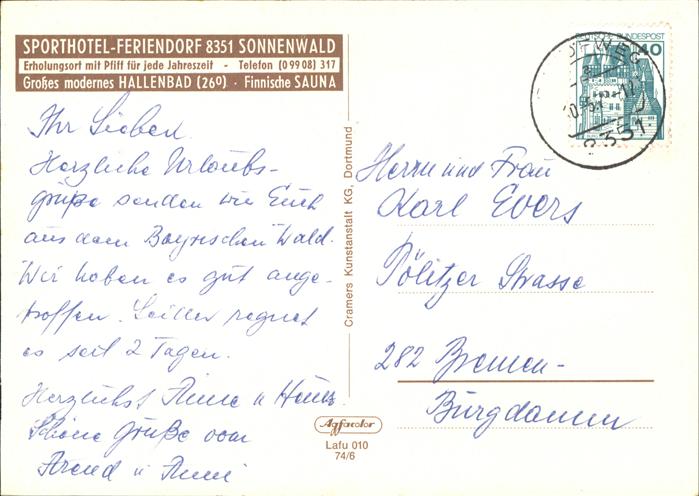 SPORTHOTEL-FERIENDORF 8351 SONNENWALD
Erholungsort mit Pfiff für jede Jahreszeit - Telefon (0 99 08) 317
Großes modernes HALLENBAD (26º) · Finnische SAUNA
Ihr Lieben
Herzliche Urlaubs-
grüße senden wir Euch
aus dem Bayrischen Wald.
Wir haben es gut ange-
troffen. Leider regnet
es seit 2 Tagen.
Herzlichst Anne u Heinz
Schöne Grüße von
Arend u Anni
Cramers Kunstanstalt KG, Dortmund
Agfacolor
Lafu 010
74/6
DEUTSCHE BUNDESPOST
40
8351
Herrn und Frau
Karl Evers
Pölitzer Strasse
282 Bremen-
Burgdamm